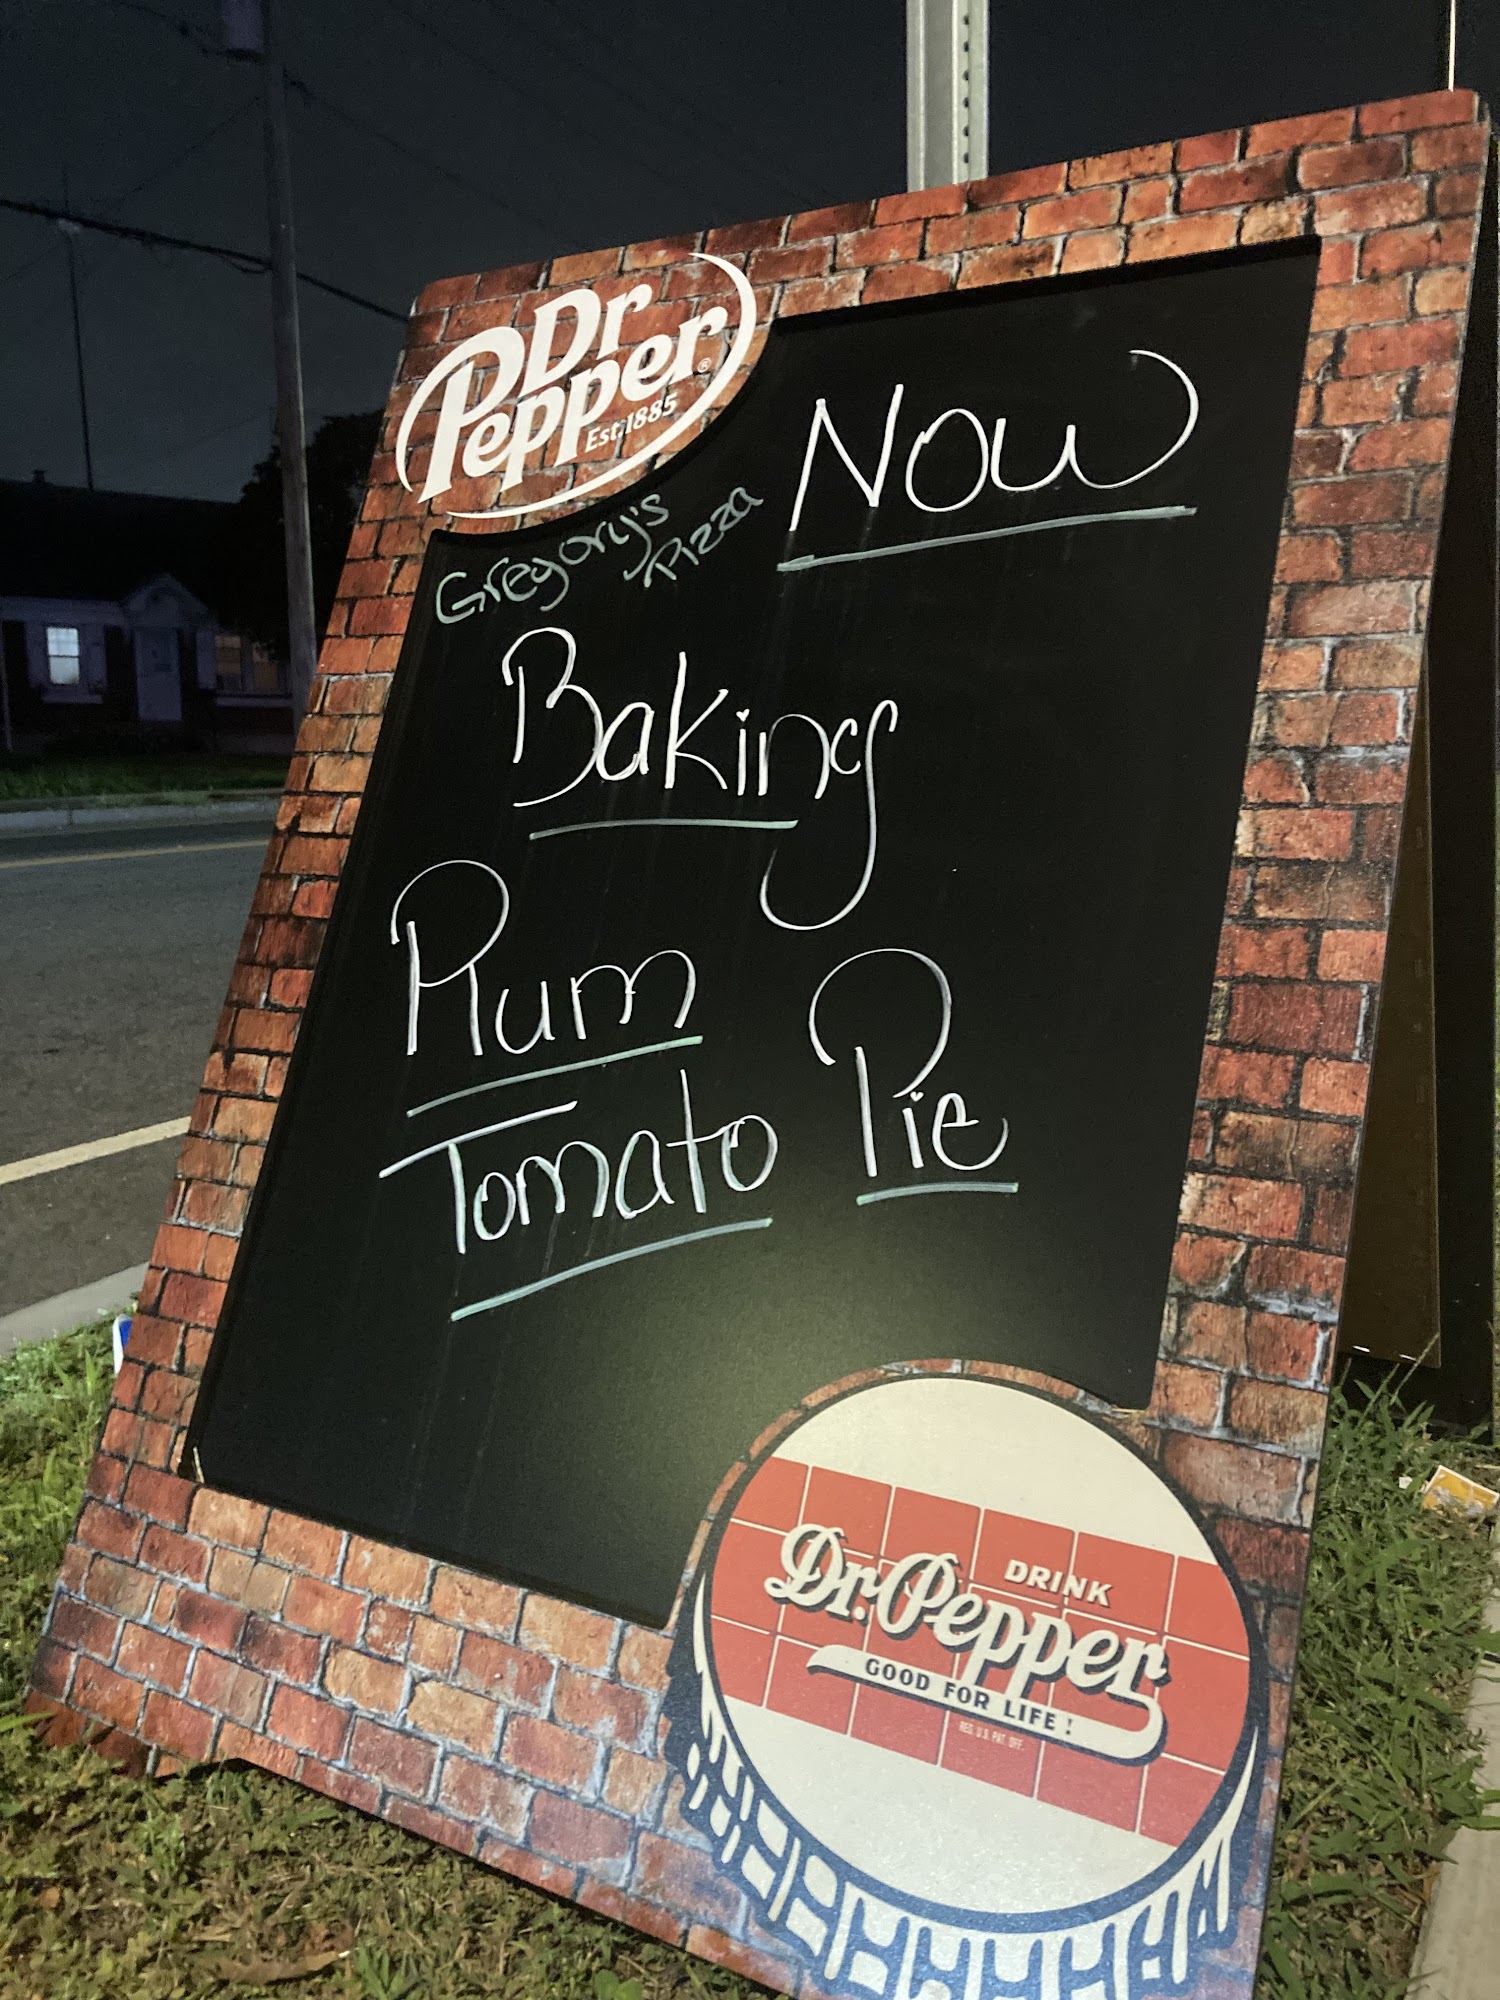 Dr
Pepper®
Est. 1885
Now
Gregory's
Pizza
Baking
Plum
Tomato Pie
DRINK
Dr. Pepper
GOOD FOR LIFE!
REG. U.S. PAT. OFF.